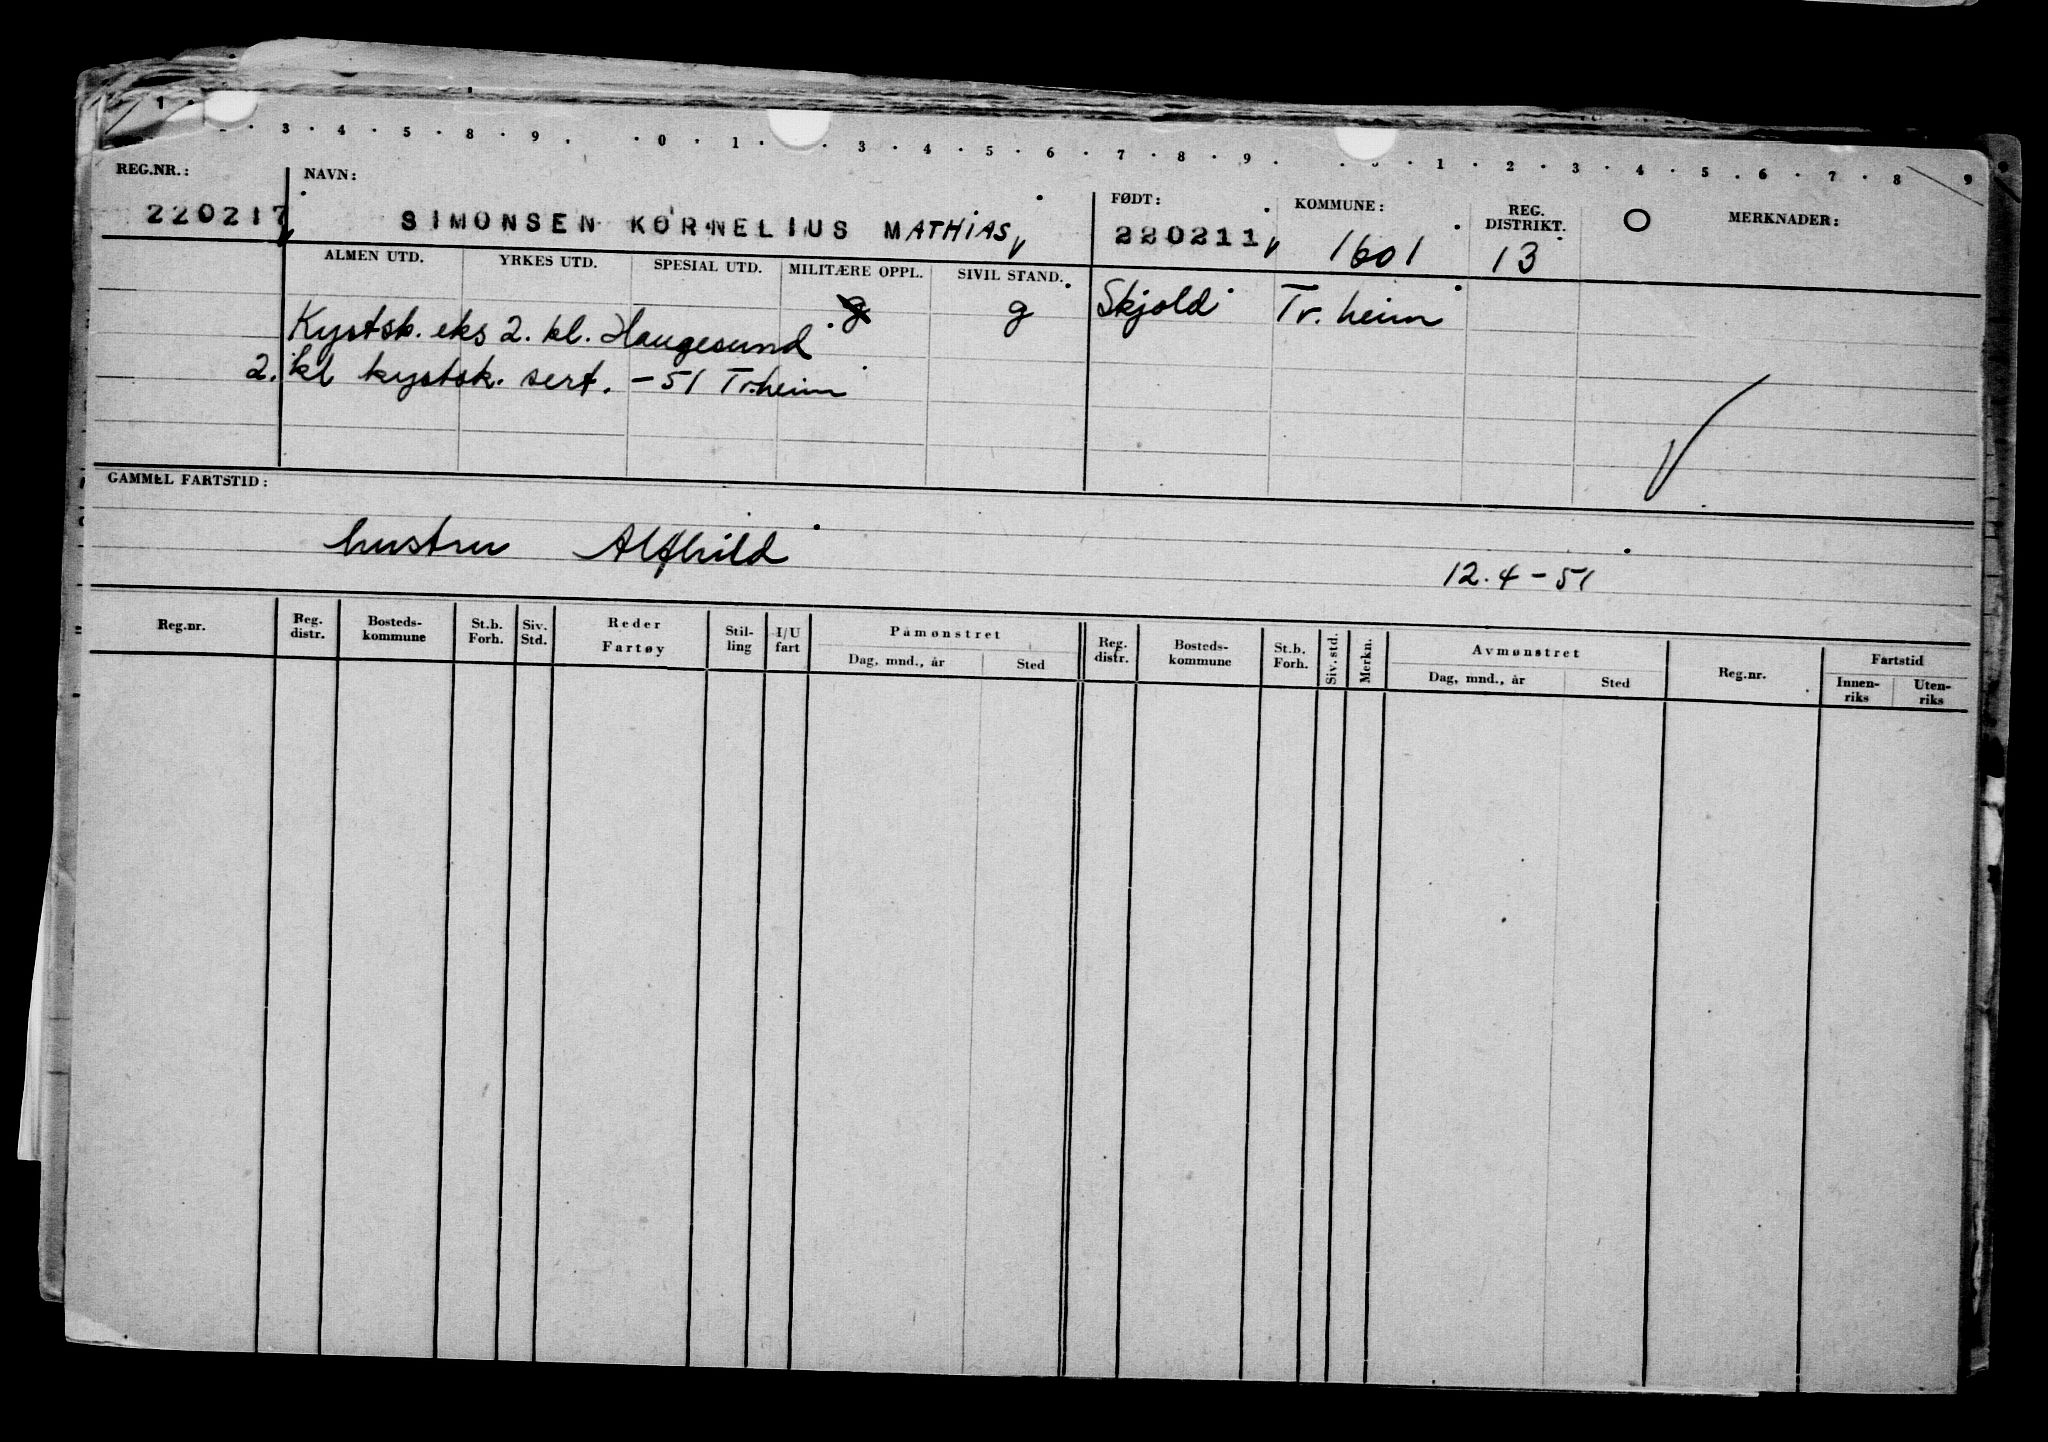 1 · 3 · 4 · 5 · 8 · 9 · 0 · 1 · 3 · 4 · 5 · 6 · 7 · 8 · 9 · 1 · 2 · 3 · 4 · 5 · 6 · 7 · 8 9
REG.NR.: NAVN: FØDT: KOMMUNE: REG. DISTRIKT. O MERKNADER:
220217 SIMONSEN KORNELIUS MATHIAS 220211 1601 13
ALMEN UTD. YRKES UTD. SPESIAL UTD. MILITÆRE OPPL. SIVIL STAND.
g g Skjold Tr.heim
Kystsk. eks 2. kl. Haugesund
2. kl kystsk. sert. -51 Tr.heim
GAMMEL FARTSTID:
hustru Alfhild
12.4-51
Reg.nr. Reg. distr. Bosteds-kommune St.b. Forh. Siv. Std. Reder Fartøy Stil-ling I/U fart Påmønstret Reg. distr. Bosteds-kommune St.b. Forh. Siv. std. Merkn. Avmønstret Reg.nr. Fartstid
Dag, mnd., år Sted Dag, mnd., år Sted Innen-riks Uten-riks